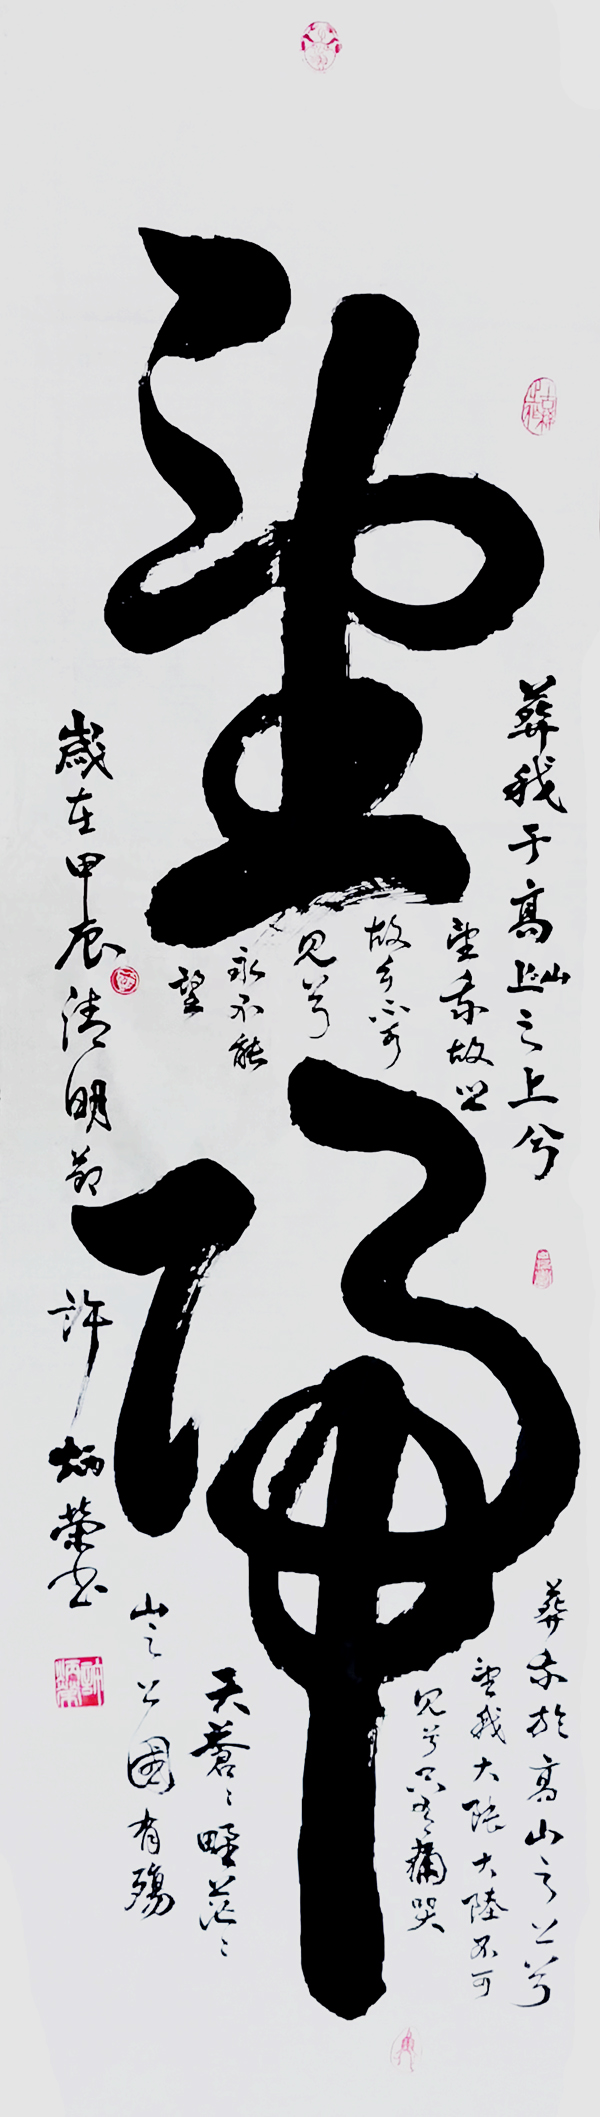 望歸
葬我于高山之上兮
望我故乡
故乡不可
見兮
永不能
望
葬我於高山之上兮
望我大陸大陸不可
見兮只有痛哭
天蒼〻野茫〻
山之上國有殤
歲在甲辰清明節
許炳榮書